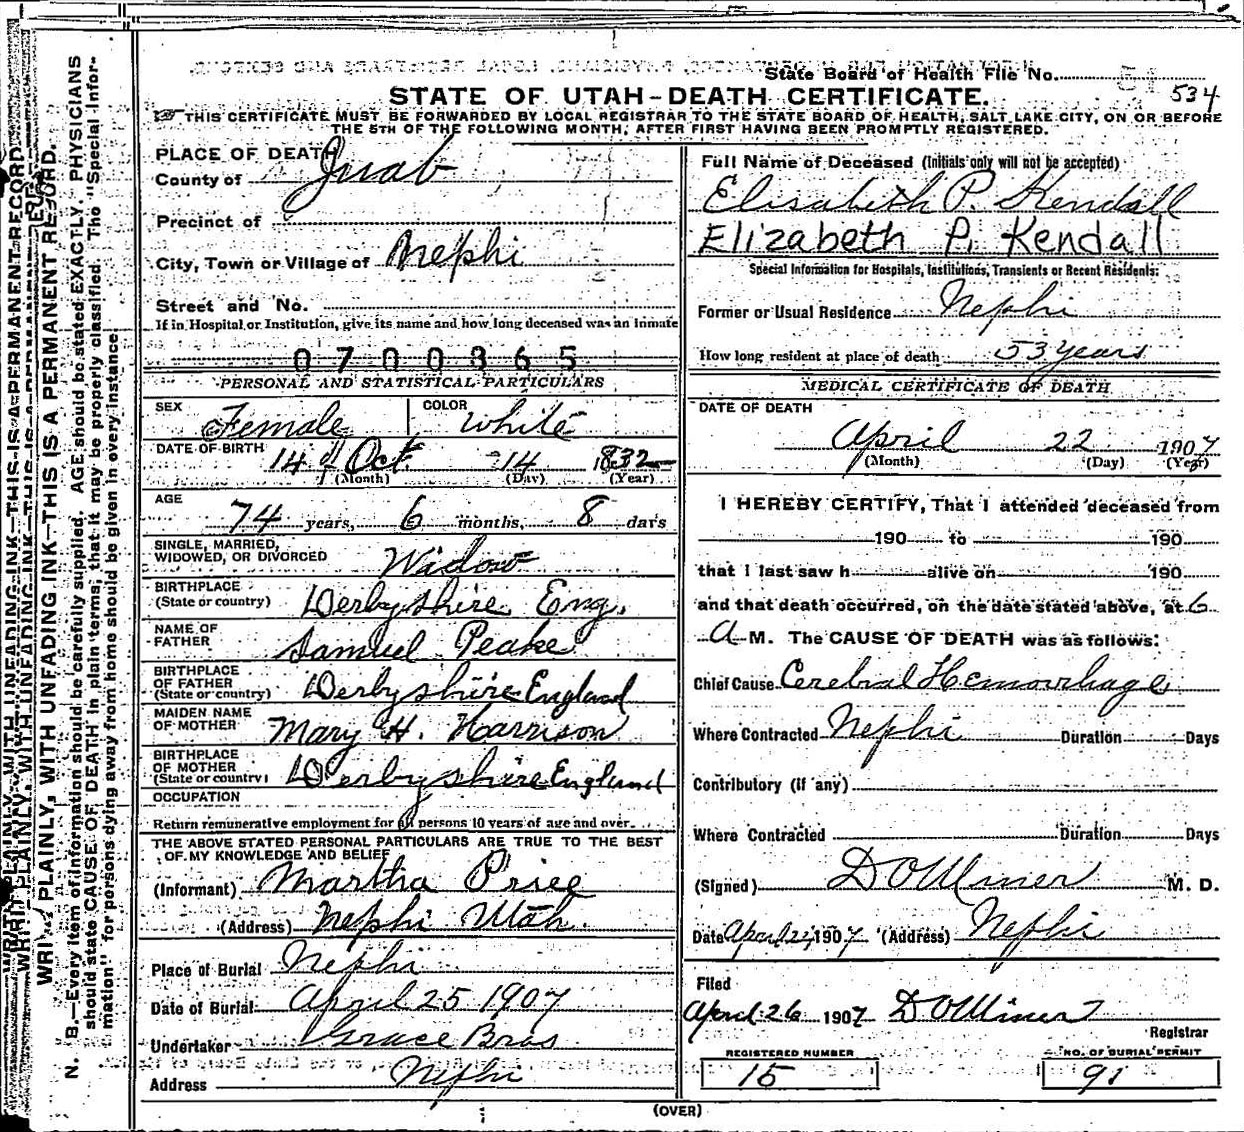 State Board of Health File No.
534
STATE OF UTAH-DEATH CERTIFICATE.
THIS CERTIFICATE MUST BE FORWARDED BY LOCAL REGISTRAR TO THE STATE BOARD OF HEALTH, SALT LAKE CITY, ON OR BEFORE
THE 5TH OF THE FOLLOWING MONTH, AFTER FIRST HAVING BEEN PROMPTLY REGISTERED.
PLACE OF DEATH
County of Juab
Precinct of
City, Town or Village of Nephi
Street and No.
If in Hospital or Institution, give its name and how long deceased was an Inmate
0700365
PERSONAL AND STATISTICAL PARTICULARS
SEX Female COLOR White
DATE OF BIRTH 14 of Oct. 14 1832
(Month) (Day) (Year)
AGE 74 years, 6 months, 8 days
SINGLE, MARRIED,
WIDOWED, OR DIVORCED Widow
BIRTHPLACE
(State or country) Derbyshire Eng.
NAME OF
FATHER Samuel Peake
BIRTHPLACE
OF FATHER
(State or country) Derbyshire England
MAIDEN NAME
OF MOTHER Mary H. Harrison
BIRTHPLACE
OF MOTHER
(State or country) Derbyshire England
OCCUPATION
Return remunerative employment for all persons 10 years of age and over
THE ABOVE STATED PERSONAL PARTICULARS ARE TRUE TO THE BEST
OF MY KNOWLEDGE AND BELIEF
(Informant) Martha Price
(Address) Nephi Utah
Place of Burial Nephi
Date of Burial April 25 1907
Undertaker Grace Bros
Address Nephi
Full Name of Deceased (Initials only will not be accepted)
Elisabeth P. Kendall
Elizabeth P. Kendall
Special Information for Hospitals, Institutions, Transients or Recent Residents:
Former or Usual Residence Nephi
How long resident at place of death 53 years
MEDICAL CERTIFICATE OF DEATH
DATE OF DEATH
April 22 1907
(Month) (Day) (Year)
I HEREBY CERTIFY, That I attended deceased from
190 to 190
that I last saw h alive on 190
and that death occurred, on the date stated above, at 6
A M. The CAUSE OF DEATH was as follows:
Chief Cause Cerebral Hemorrhage
Where Contracted Nephi Duration Days
Contributory (if any)
Where Contracted Duration Days
(Signed) D O Miner M. D.
Date April 22, 1907 (Address) Nephi
Filed
April 26 1907 D O Miner
Registrar
REGISTERED NUMBER
15
NO. OF BURIAL PERMIT
91
(OVER)
WRITE PLAINLY, WITH UNFADING INK—THIS IS A PERMANENT RECORD.
N. B.—Every item of information should be carefully supplied. AGE should be stated EXACTLY. PHYSICIANS
should state CAUSE OF DEATH in plain terms, that it may be properly classified. The "Special Infor-
mation" for persons dying away from home should be given in every instance